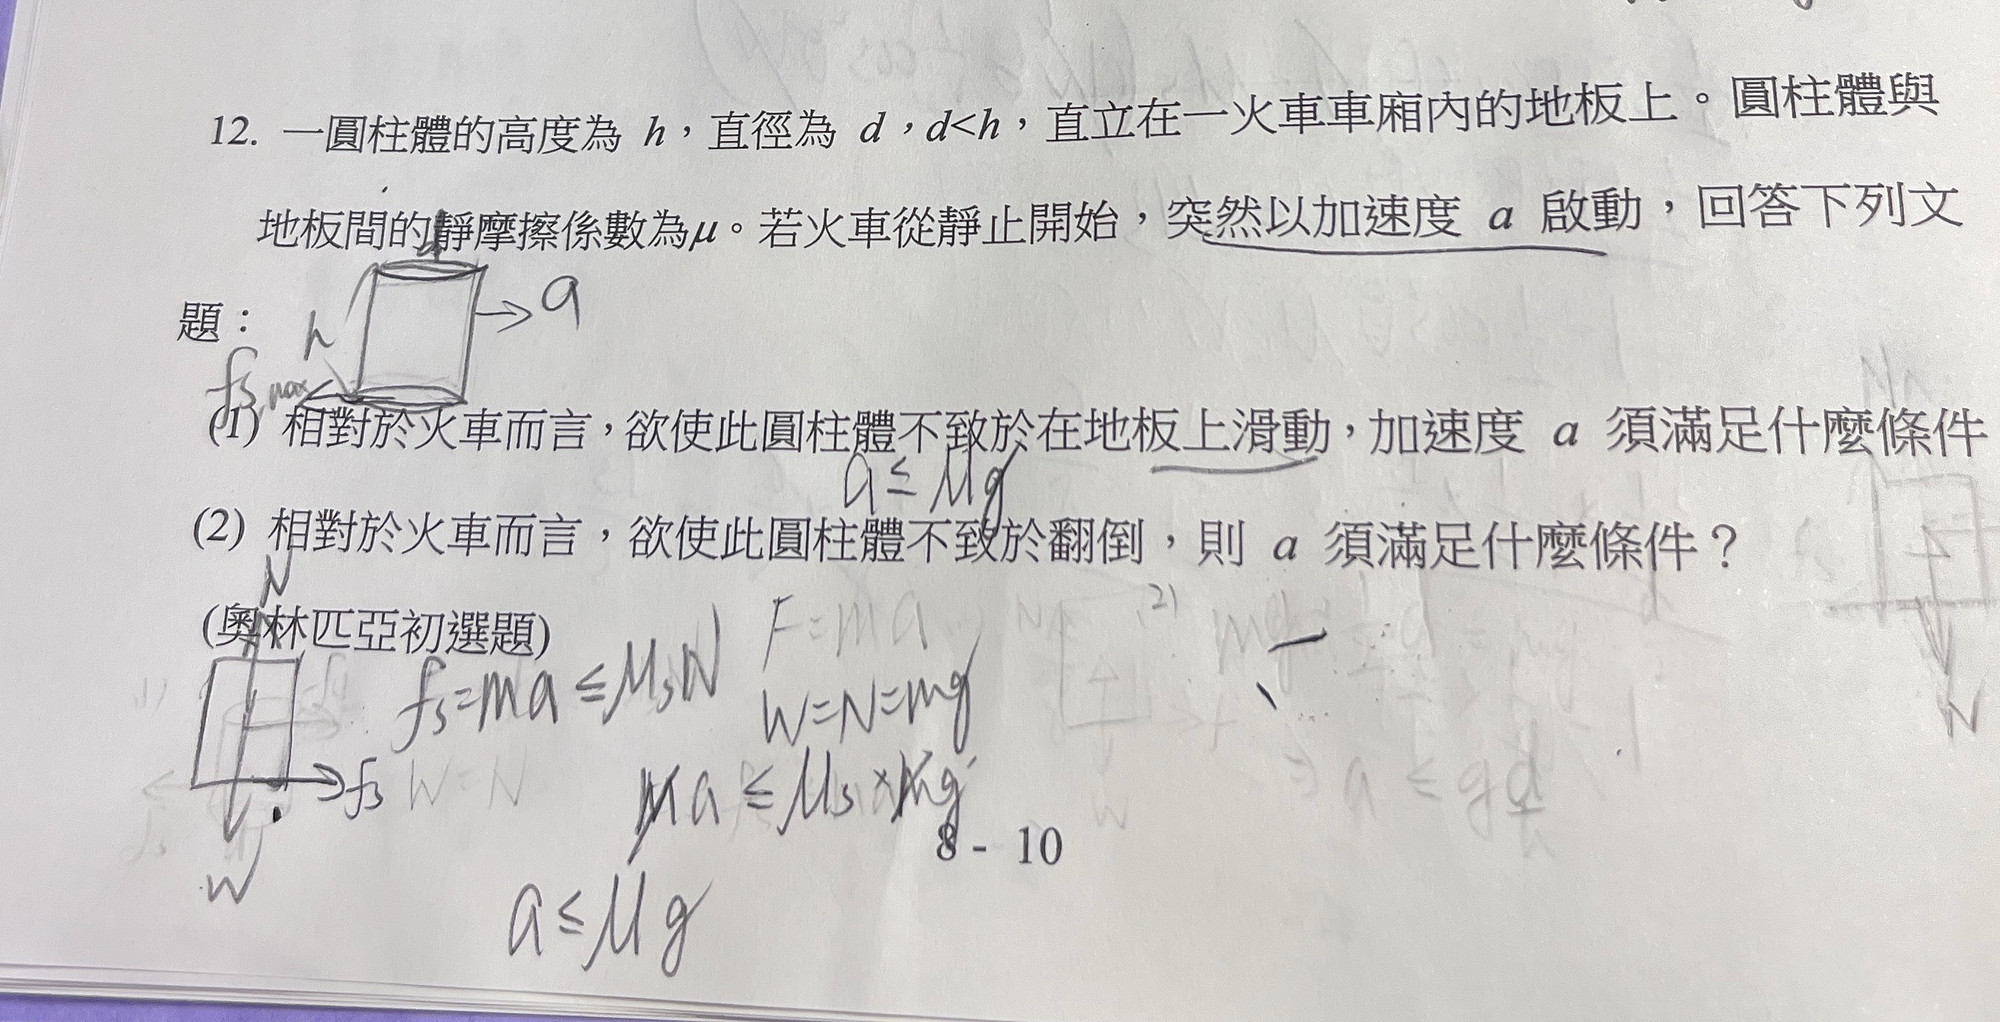 12. 一圓柱體的高度為 h，直徑為 d，d<h，直立在一火車車廂內的地板上。圓柱體與
地板間的靜摩擦係數為μ。若火車從靜止開始，突然以加速度 a 啟動，回答下列文
題：
h
a
fs,max
(1) 相對於火車而言，欲使此圓柱體不致於在地板上滑動，加速度 a 須滿足什麼條件
a≤μg
(2) 相對於火車而言，欲使此圓柱體不致於翻倒，則 a 須滿足什麼條件？
N
(奧林匹亞初選題)
fs=ma≤μsN
F=ma
W=N=mg
fs
W=N
ma≤μs×mg
W
8 - 10
a≤μg